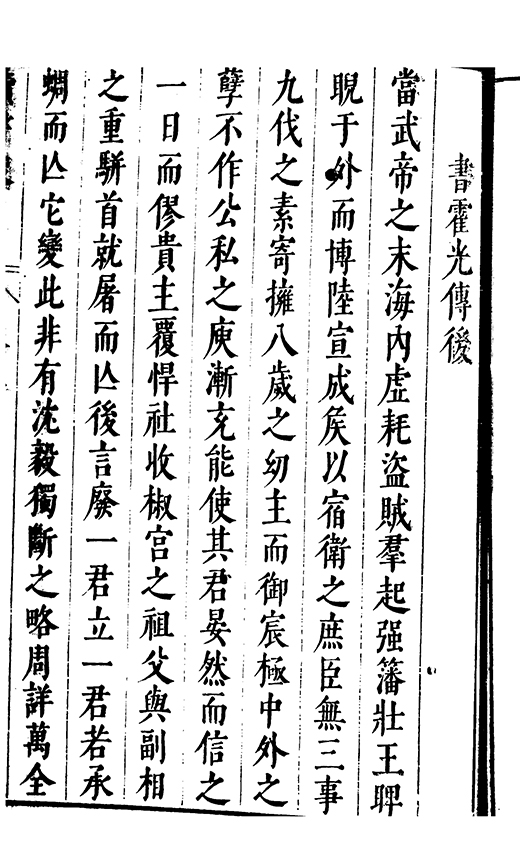 書霍光傳後
當武帝之末海內虛耗盜賊羣起强籓壯王睥
睨于外而博陸宣成矦以宿衛之庶臣無三事
九伐之素寄擁八歲之幼主而御宸極中外之
孽不作公私之庾漸充能使其君晏然而信之
一日而僇貴主覆悍社收椒宫之祖父與副相
之重駢首就屠而亾後言廢一君立一君若承
蜩而亾它變此非有沈毅獨斷之略周詳萬全